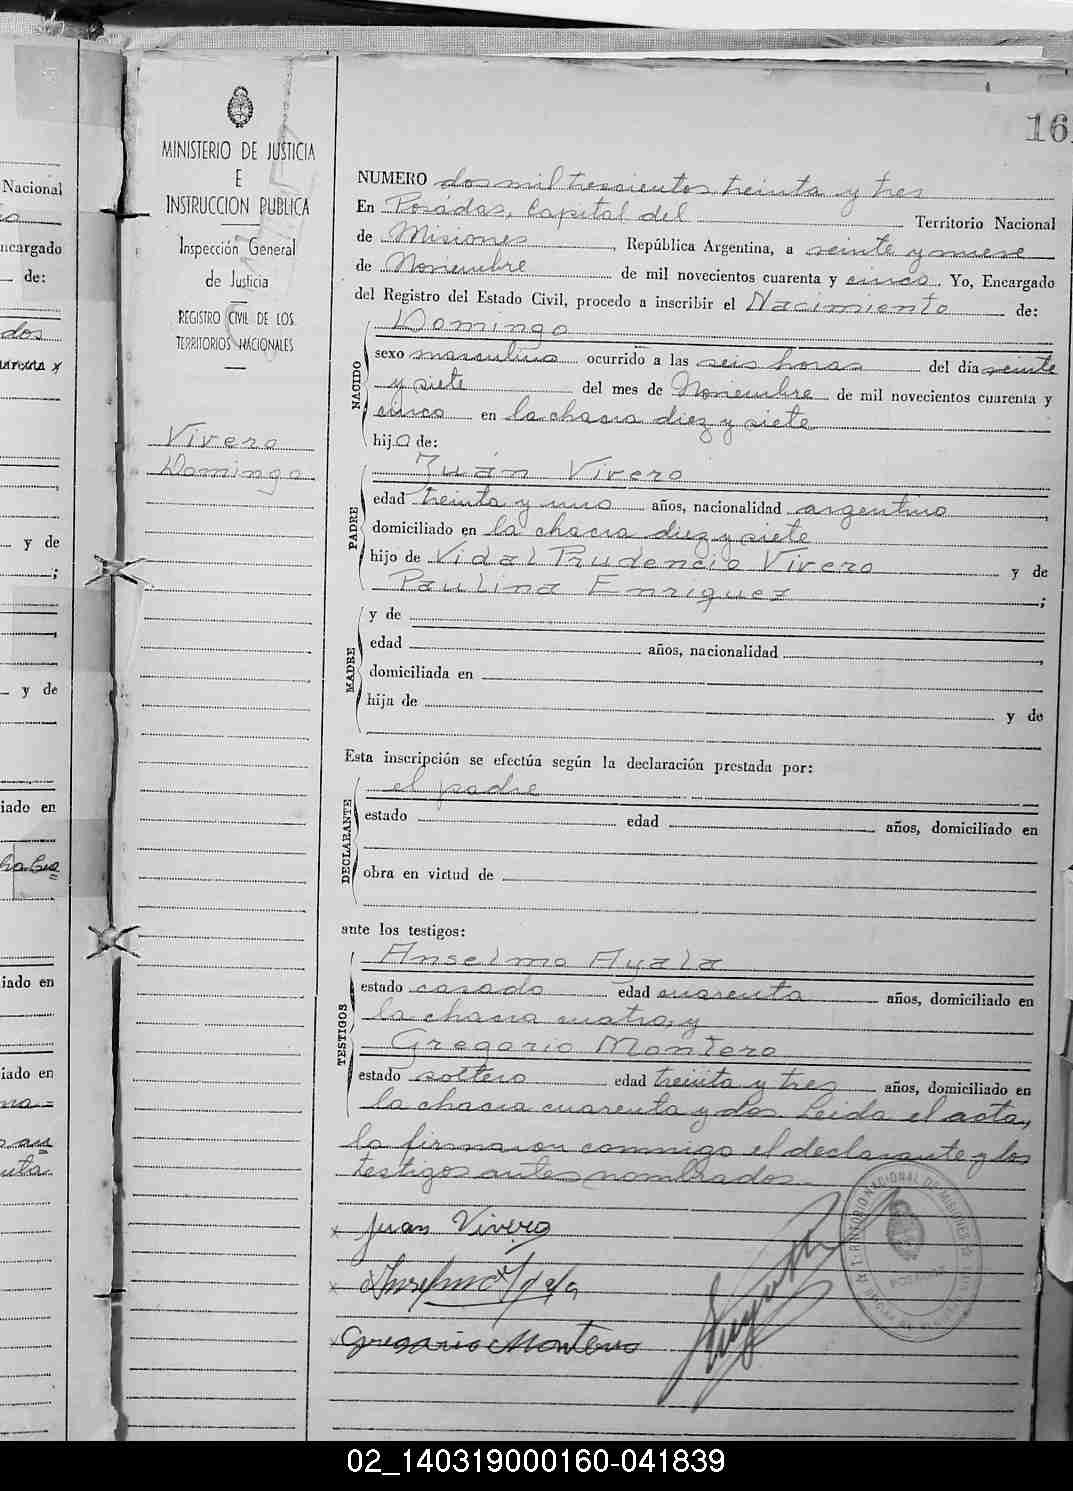 Nacional
ncargado
de:
dos
y de
;
y de
iado en
iado en
iado en
MINISTERIO DE JUSTICIA
E
INSTRUCCION PUBLICA
Inspección General
de Justicia
REGISTRO CIVIL DE LOS
TERRITORIOS NACIONALES
Vivero
Domingo
16
NUMERO dos mil trescientos treinta y tres
En Posadas, Capital del Territorio Nacional
de Misiones, República Argentina, a veinte y nueve
de Noviembre de mil novecientos cuarenta y cinco. Yo, Encargado
del Registro del Estado Civil, procedo a inscribir el Nacimiento de:
NACIDO
Domingo
sexo masculino ocurrido a las seis horas del día veinte
y siete del mes de Noviembre de mil novecientos cuarenta y
cinco en la chacra diez y siete
hijo de:
PADRE
Juan Vivero
edad treinta y uno años, nacionalidad argentino,
domiciliado en la chacra diez y siete
hijo de Vidal Prudencio Vivero y de
Paulina Enriquez;
MADRE
y de
edad años, nacionalidad,
domiciliada en
hija de y de
Esta inscripción se efectúa según la declaración prestada por:
DECLARANTE
el padre
estado edad años, domiciliado en
obra en virtud de
ante los testigos:
TESTIGOS
Anselmo Ayala
estado casado edad cuarenta años, domiciliado en
la chacra cuatro, y
Gregorio Montero
estado soltero edad treinta y tres años, domiciliado en
la chacra cuarenta y dos. Leida el acta,
la firmaron conmigo el declarante y los
testigos antes nombrados.
x Juan Vivero
x Anselmo Ayala
x Gregorio Montero
TERRITORIO NACIONAL DE MISIONES
POSADAS
02_140319000160-041839